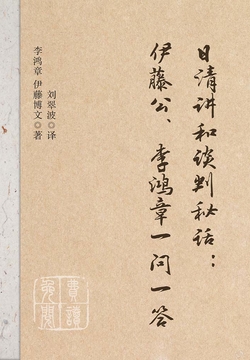 日清讲和谈判秘话：
伊藤公、李鸿章一问一答
李鸿章 伊藤博文◎著
刘翠波◎译